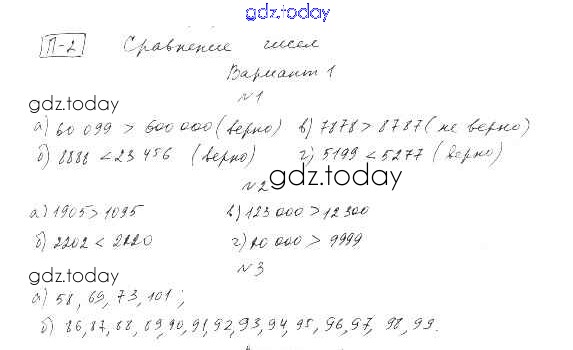 gdz.today
П-2 Сравнение чисел
Вариант 1
gdz.today
№1
а) 60 099 > 600 000 (верно) в) 7878 > 8787 (не верно)
б) 8888 < 23 456 (верно) г) 5199 < 5277 (верно)
gdz.today
№2
а) 1905 > 1095 в) 123 000 > 12 300
б) 2202 < 2220 г) 10 000 > 9999
gdz.today
№3
а) 58, 69, 73, 101;
б) 86, 87, 88, 89, 90, 91, 92, 93, 94, 95, 96, 97, 98, 99.